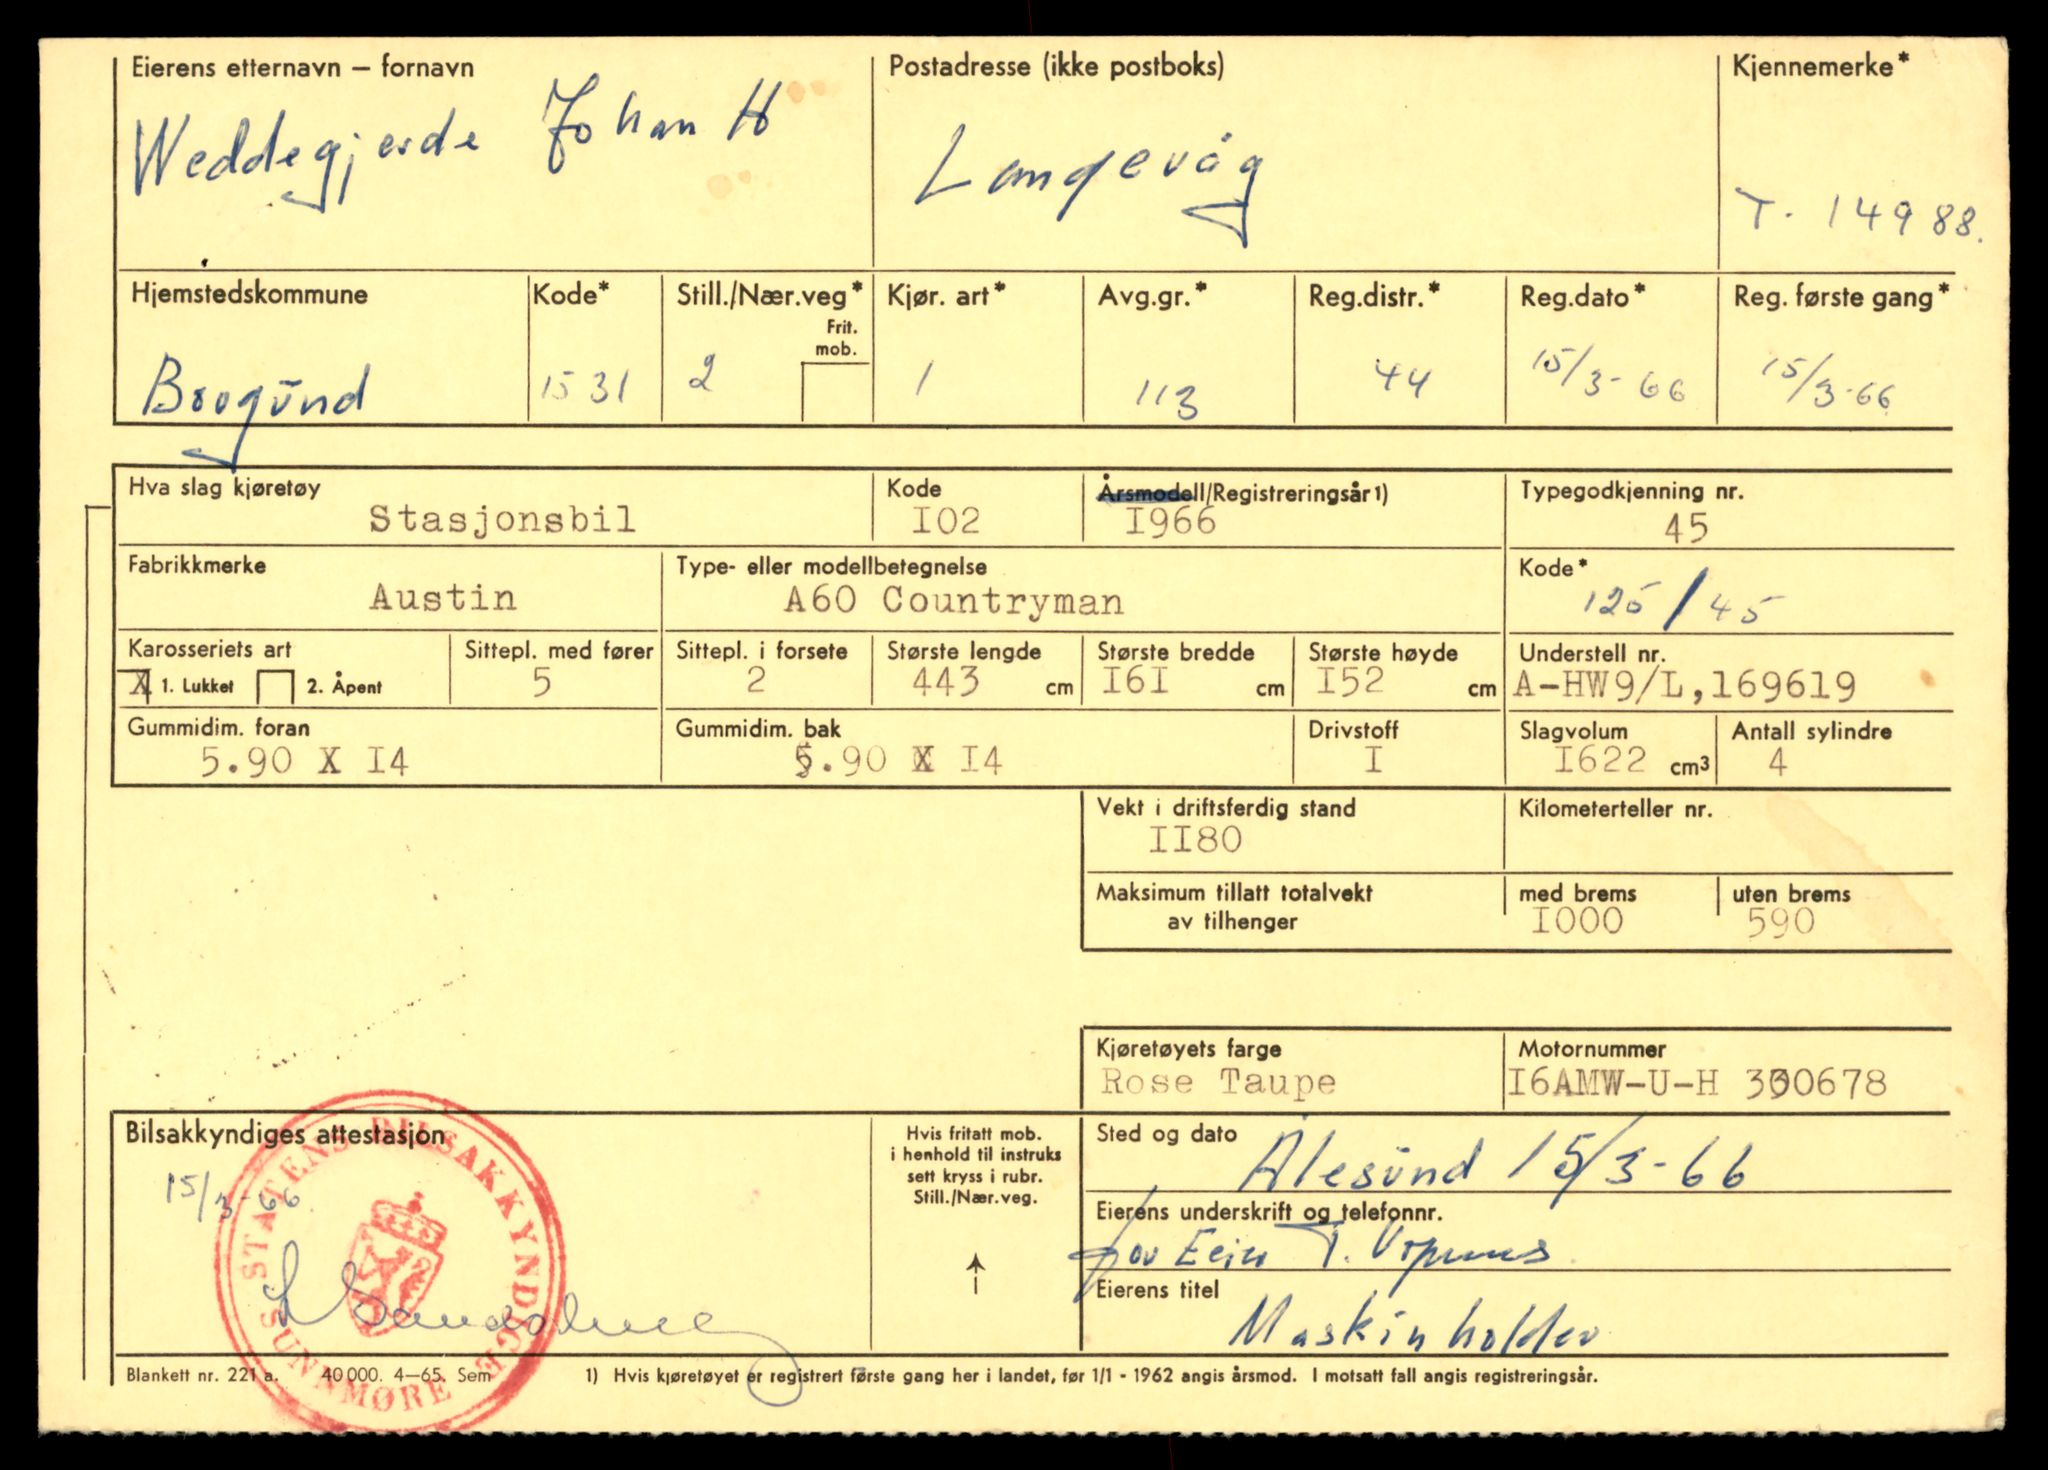 Eierens etternavn — fornavn Postadresse (ikke postboks) Kjennemerke*
Weddegjerde Johan H Langevåg T. 14988.
Hjemstedskommune Kode* Still./Nær.veg* Kjør. art* Avg.gr.* Reg.distr.* Reg.dato* Reg. første gang*
Frit. mob.
Borgund 1531 2 1 113 44 15/3-66 15/3-66
Hva slag kjøretøy Kode Årsmodell/Registreringsår1) Typegodkjenning nr.
Stasjonsbil I02 I966 45
Fabrikkmerke Type- eller modellbetegnelse Kode*
Austin A60 Countryman 125/45
Karosseriets art Sittepl. med fører Sittepl. i forsete Største lengde Største bredde Største høyde Understell nr.
X 1. Lukket 2. Åpent 5 2 443 cm I6I cm I52 cm A-HW9/L,169619
Gummidim. foran Gummidim. bak Drivstoff Slagvolum Antall sylindre
5.90 X I4 5.90 X I4 I I622 cm3 4
Vekt i driftsferdig stand Kilometerteller nr.
II80
Maksimum tillatt totalvekt med brems uten brems
av tilhenger I000 590
Kjøretøyets farge Motornummer
Rose Taupe I6AMW-U-H 330678
Bilsakkyndiges attestasjon
15/3-66
STATENS BILSAKKYNDIGE
SUNNMØRE
Hvis fritatt mob.
i henhold til instruks
sett kryss i rubr.
Still./Nær.veg.
Sted og dato
Ålesund 15/3-66
Eierens underskrift og telefonnr.
for Eier T.
Eierens titel
Maskinholder
Blankett nr. 221 a. 40 000. 4—65. Sem 1) Hvis kjøretøyet er registrert første gang her i landet, før 1/1 - 1962 angis årsmod. I motsatt fall angis registreringsår.